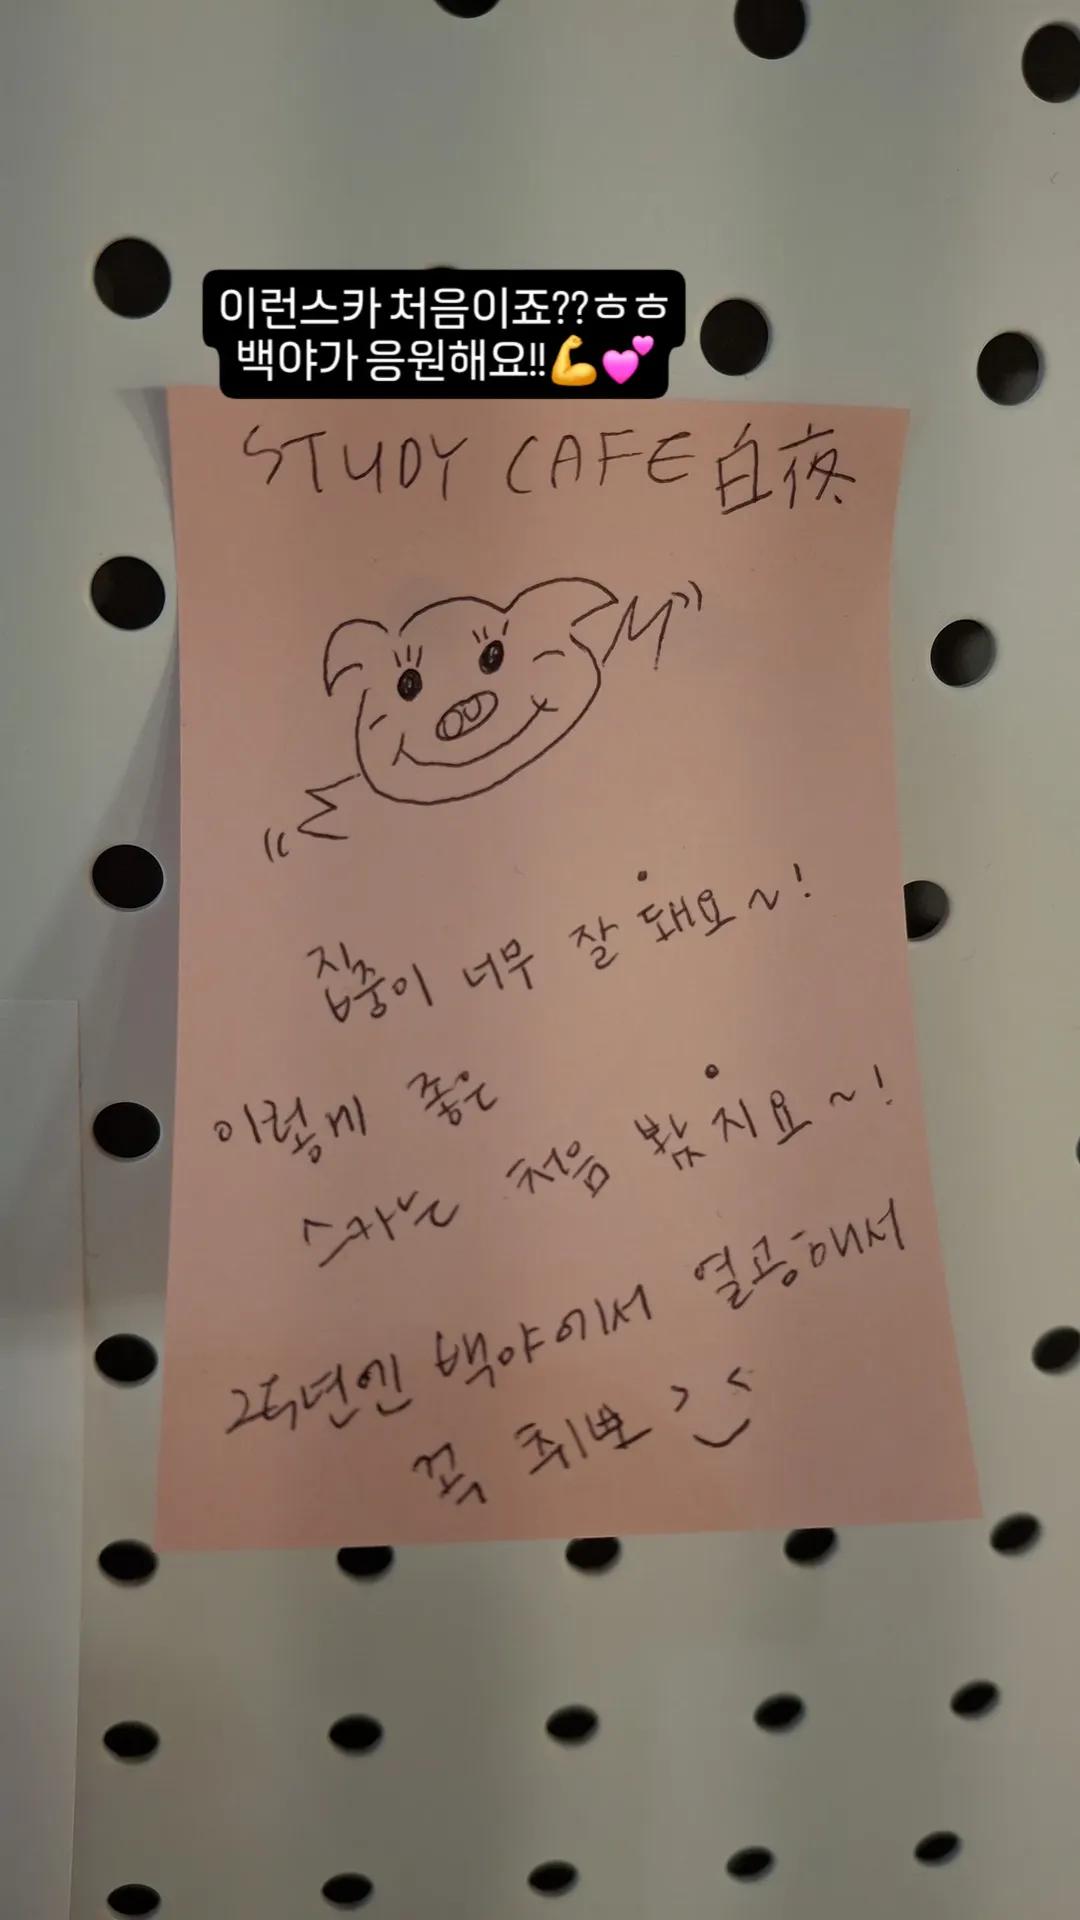 이런스카 처음이죠??ㅎㅎ
백야가 응원해요!!💪💕
STUDY CAFE 白夜
집중이 너무 잘 돼요~!
이렇게 좋은
스카는 처음 봤지요~!
25년엔 백야에서 열공해서
꼭 취뽀